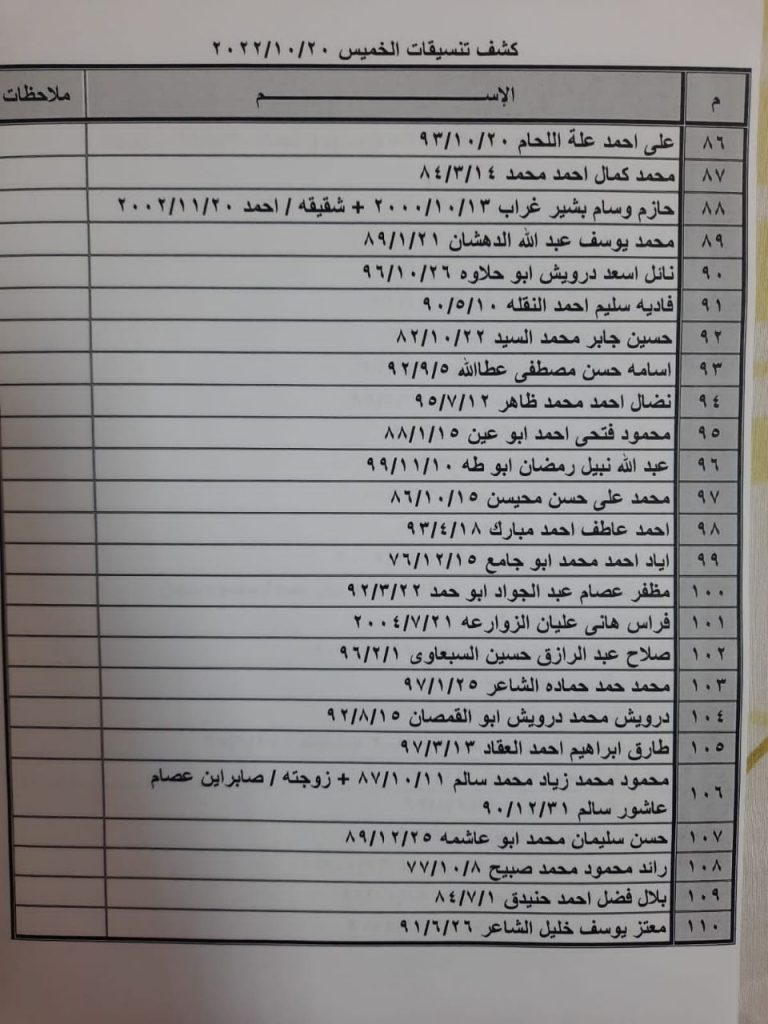 كشف تنسيقات الخميس ٢٠٢٢/١٠/٢٠
م الإســـــــــــم ملاحظات
٨٦ على احمد علة اللحام ٩٣/١٠/٢٠
٨٧ محمد كمال احمد محمد ٨٤/٣/١٤
٨٨ حازم وسام بشير غراب ٢٠٠٠/١٠/١٣ + شقيقه / احمد ٢٠٠٢/١١/٢٠
٨٩ محمد يوسف عبد الله الدهشان ٨٩/١/٢١
٩٠ نائل اسعد درويش ابو حلاوه ٩٦/١٠/٢٦
٩١ فاديه سليم احمد النقله ٩٠/٥/١٠
٩٢ حسين جابر محمد السيد ٨٢/١٠/٢٢
٩٣ اسامه حسن مصطفى عطاالله ٩٢/٩/٥
٩٤ نضال احمد محمد ظاهر ٩٥/٧/١٢
٩٥ محمود فتحى احمد ابو عين ٨٨/١/١٥
٩٦ عبد الله نبيل رمضان ابو طه ٩٩/١١/١٠
٩٧ محمد على حسن محيسن ٨٦/١٠/١٥
٩٨ احمد عاطف احمد مبارك ٩٣/٤/١٨
٩٩ اياد احمد محمد ابو جامع ٧٦/١٢/١٥
١٠٠ مظفر عصام عبد الجواد ابو حمد ٩٢/٣/٢٢
١٠١ فراس هانى عليان الزوارعه ٢٠٠٤/٧/٢١
١٠٢ صلاح عبد الرازق حسين السبعاوى ٩٦/٢/١
١٠٣ محمد حمد حماده الشاعر ٩٧/١/٢٥
١٠٤ درويش محمد درويش ابو القمصان ٩٢/٨/١٥
١٠٥ طارق ابراهيم احمد العقاد ٩٧/٣/١٣
١٠٦ محمود محمد زياد محمد سالم ٨٧/١٠/١١ + زوجته / صابراين عصام
عاشور سالم ٩٠/١٢/٣١
١٠٧ حسن سليمان محمد ابو عاشمه ٨٩/١٢/٢٥
١٠٨ رائد محمود محمد صبيح ٧٧/١٠/٨
١٠٩ بلال فضل احمد حنيدق ٨٤/٧/١
١١٠ معتز يوسف خليل الشاعر ٩١/٦/٢٦